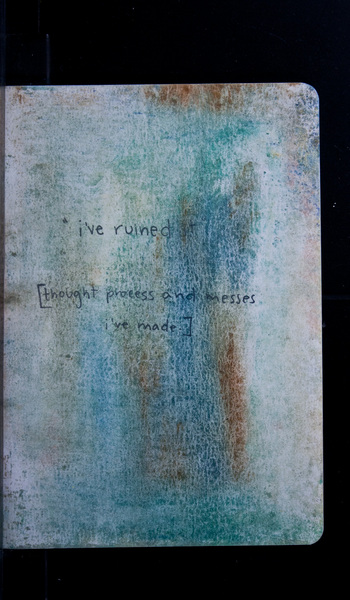 i've ruined it
[thought process and messes
i've made.]